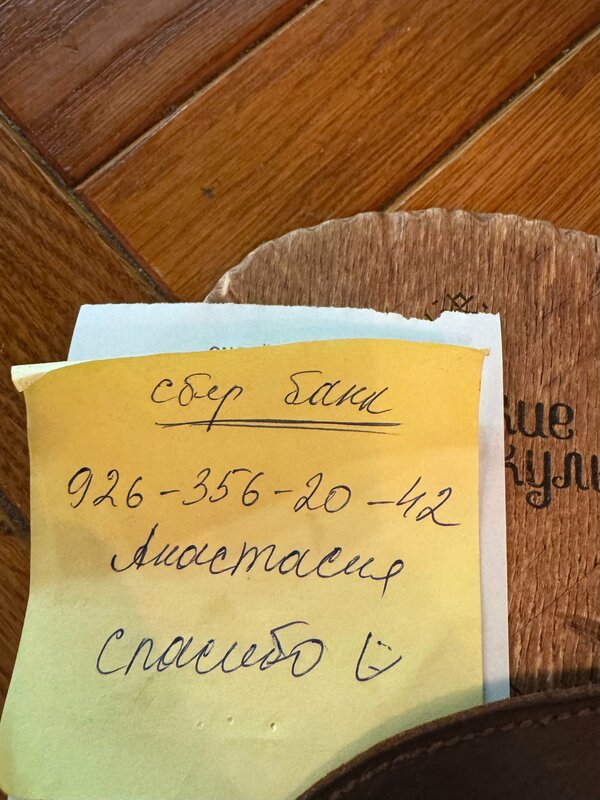 сбер банк
926-356-20-42
Анастасия
спасибо